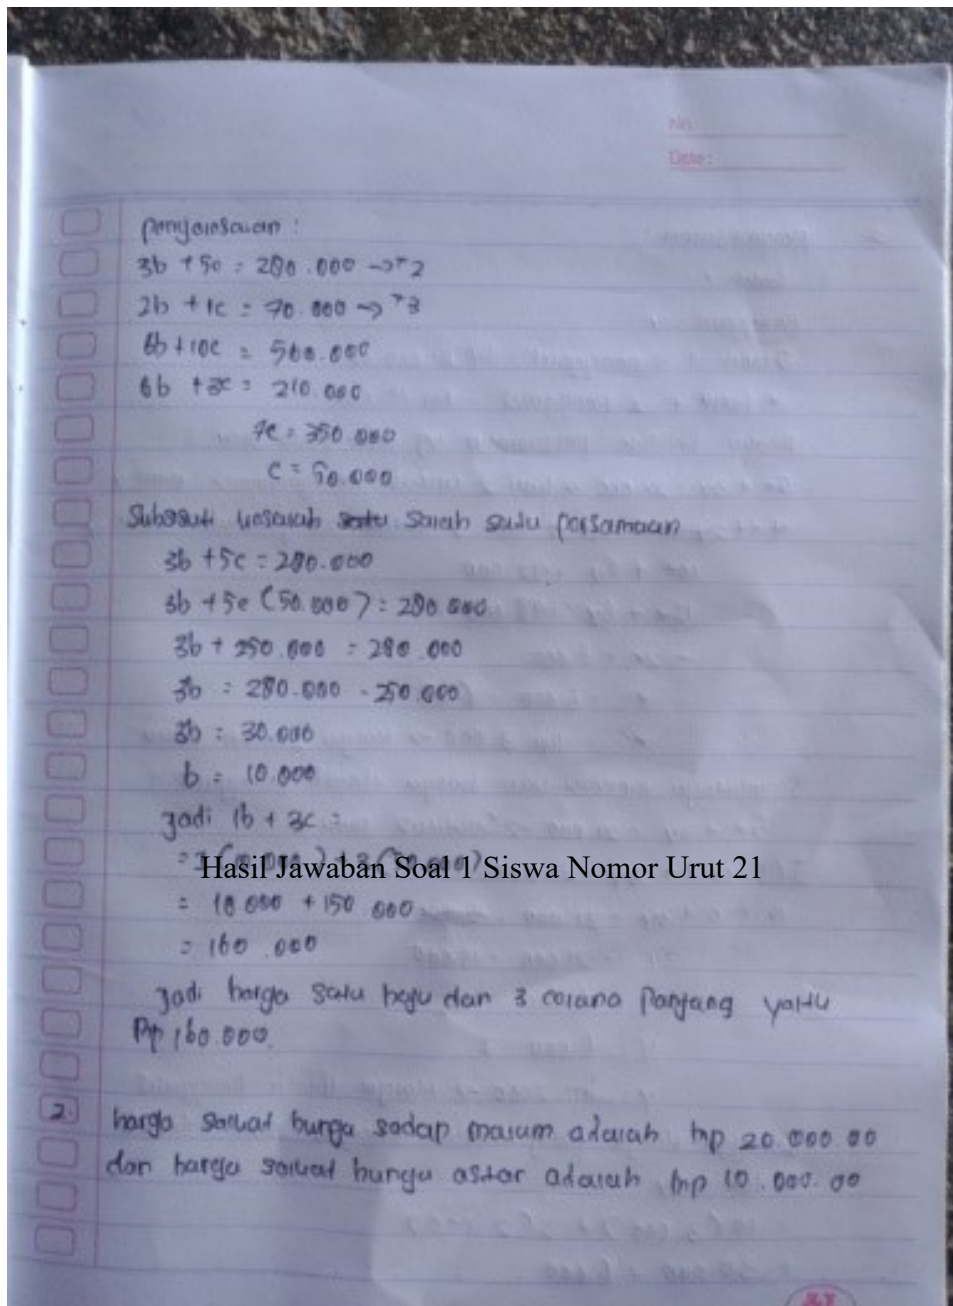 No
Date:
Penyelesaian :
3b + 5c = 280.000 → *2
2b + 1c = 70.000 → *3
6b + 10c = 560.000
6b + 3c = 210.000
7c = 350.000
c = 50.000
salah satu persamaan
3b + 5c = 280.000
3b + 5c (50.000) = 280.000
3b + 250.000 = 280.000
3b = 280.000 - 250.000
3b = 30.000
b = 10.000
Jadi 1b + 3c =
Hasil Jawaban Soal 1 Siswa Nomor Urut 21
= 10.000 + 150.000
= 160.000
Jadi harga satu baju dan 3 celana Panjang yaitu
Rp 160.000.
2. harga bunga sedap malam adalah Rp 20.000.00
dan harga bunga aster adalah Rp 10.000.00